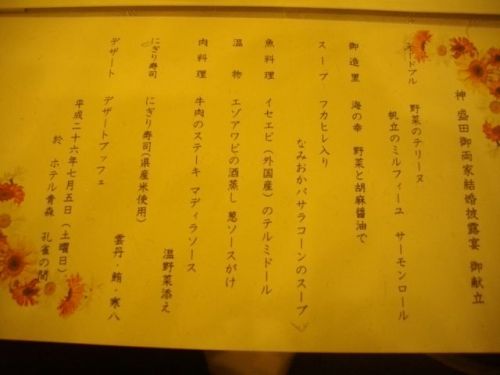 神 盛田御両家結婚披露宴 御献立
オードブル
野菜のテリーヌ
帆立のミルフィーユ サーモンロール
御造里 海の幸 野菜と胡麻醤油で
スープ フカヒレ入り
なみおかバサラコーンのスープ
魚料理 イセエビ（外国産）のテルミドール
温物 エゾアワビの酒蒸し 葱ソースがけ
肉料理 牛肉のステーキ マディラソース
温野菜添え
にぎり寿司 にぎり寿司（県産米使用）
雲丹・鮪・寒八
デザート デザートブッフェ
平成二十六年七月五日（土曜日）
於 ホテル青森 孔雀の間